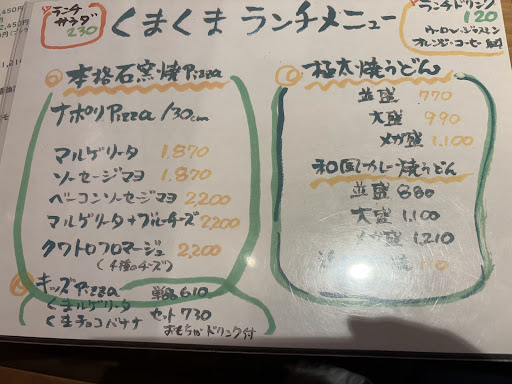 ランチ
サラダ
230
くまくま ランチメニュー
ランチドリンク
120
ウーロン・ジャスミン
オレンジ・コーヒー
本格石窯焼Pizza
ナポリPizza /30cm
マルゲリータ 1.870
ソーセージマヨ 1.870
ベーコンソーセージマヨ 2,200
マルゲリータ+ブルーチーズ 2,200
クワトロフロマージュ 2,200
(4種のチーズ)
キッズPizza 単品610
くまルゲリータ
くまチョコバナナ セット730
おもちゃドリンク付
極太焼うどん
並盛 770
大盛 990
メガ盛 1.100
和風カレー焼うどん
並盛 880
大盛 1,100
メガ盛 1,210